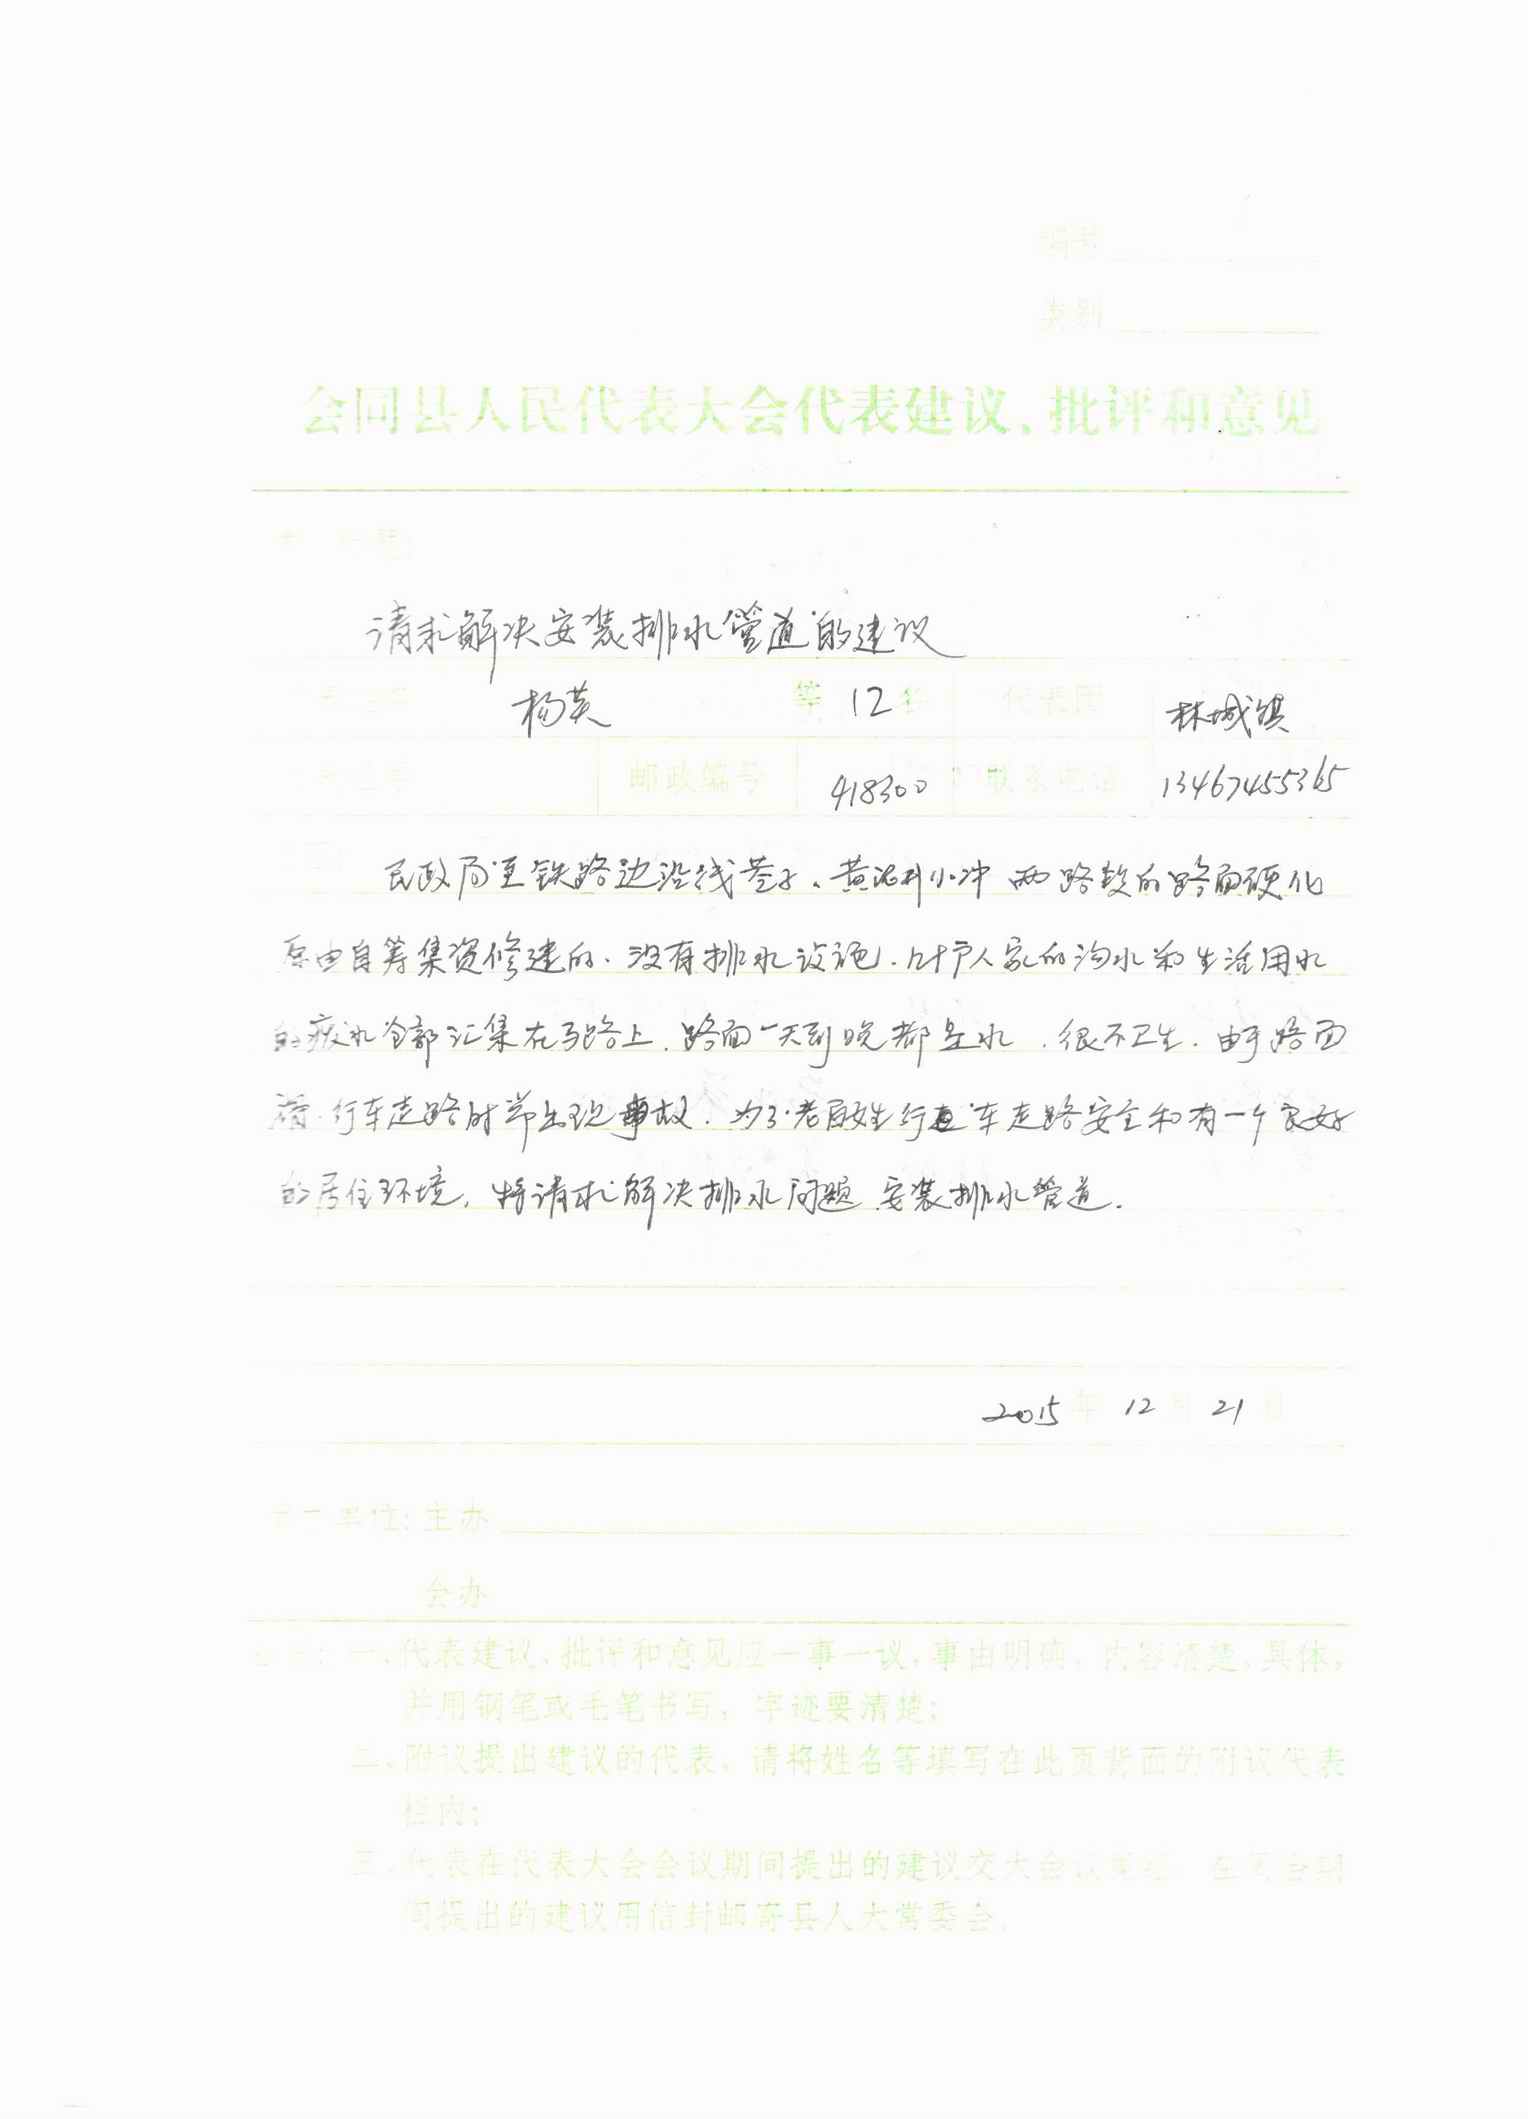 编号
类别
会同县人民代表大会代表建议、批评和意见
请求解决安装排水管道的建议
杨英 等 12 名 代表团 林城镇
邮政编号 418300 联系电话 13467455365
民政局至铁路边沿线巷子、黄泥井小冲 两路段的路面硬化
原由自筹集资修建的.没有排水设施.几十户人家的沟水和生活用水
的废水全部汇集在马路上.路面一天到晚都是水.很不卫生.由于路面
滑.行车走路时常出现事故.为了老百姓行车走路安全和有一个良好
的居住环境,特请求解决排水问题.安装排水管道.
2015 年 12 月 21 日
单位:主办
会办
一、代表建议、批评和意见应一事一议,事由明确,内容清楚、具体,
并用钢笔或毛笔书写,字迹要清楚;
二、附议提出建议的代表,请将姓名等填写在此页背面的附议代表
栏内;
三、代表在代表大会会议期间提出的建议交大会议案组,在闭会期
间提出的建议用信封邮寄县人大常委会。